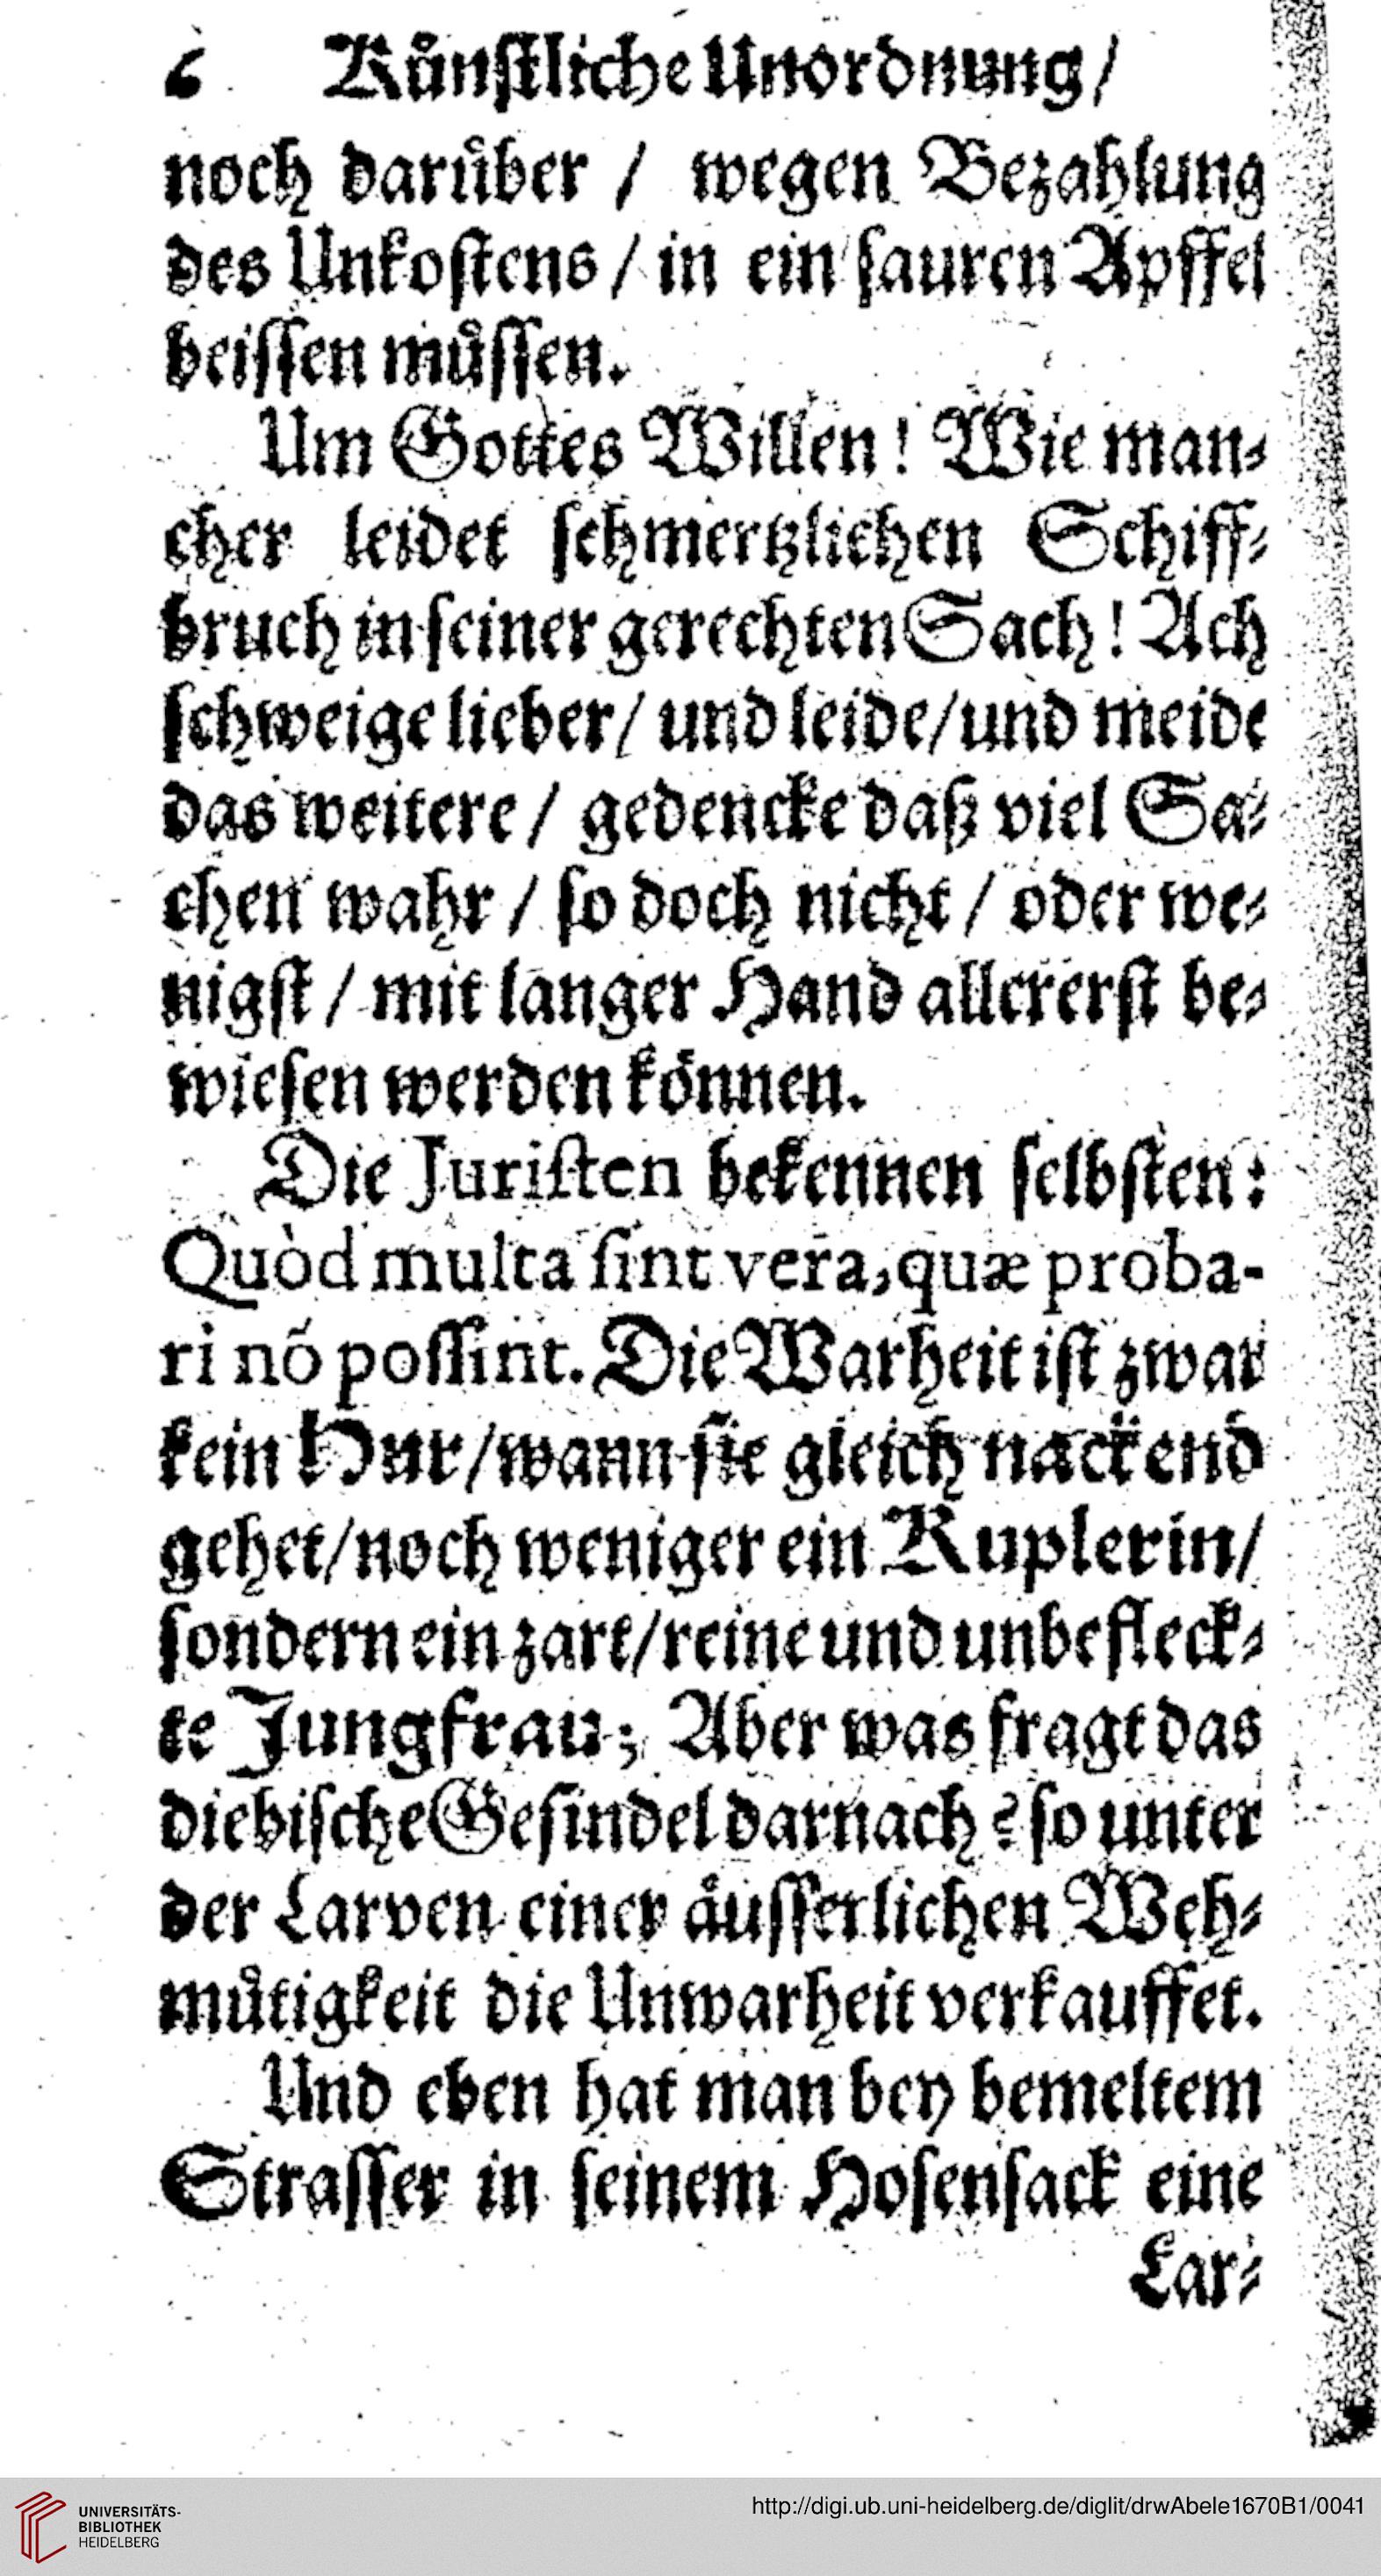 6 Kůnſtliche Unordnung/
noch darůber / wegen Bezahlung
des Unkoſtens / in ein ſauren Apffel
beiſſen můſſen.
Um Gottes Willen! Wie man⸗
cher leidet ſchmertzlichen Schiff⸗
bruch in ſeiner gerechten Sach! Ach
ſchweige lieber/ und leide/und meide
das weitere / gedencke daß viel Sa⸗
chen wahr / ſo doch nicht / oder we⸗
nigſt / mit langer Hand allererſt be⸗
wieſen werden können.
Die Juriſten bekennen ſelbſten:
Quòd multa ſint vera, quæ proba-
ri nõ poſſint. Die Warheit iſt zwar
kein Hur/wann ſie gleich nackend
gehet/noch weniger ein Kuplerin/
ſondern ein zart/reine und unbefleck⸗
te Jungfrau; Aber was fragt das
diebiſche Geſindel darnach? ſo unter
der Larven einer åuſſerlichen Weh⸗
můtigkeit die Unwarheit verkauffet.
Und eben hat man bey bemeltem
Straſſer in ſeinem Hoſenſack eine
Lar⸗
UNIVERSITÄTS-
BIBLIOTHEK
HEIDELBERG
http://digi.ub.uni-heidelberg.de/diglit/drwAbele1670B1/0041